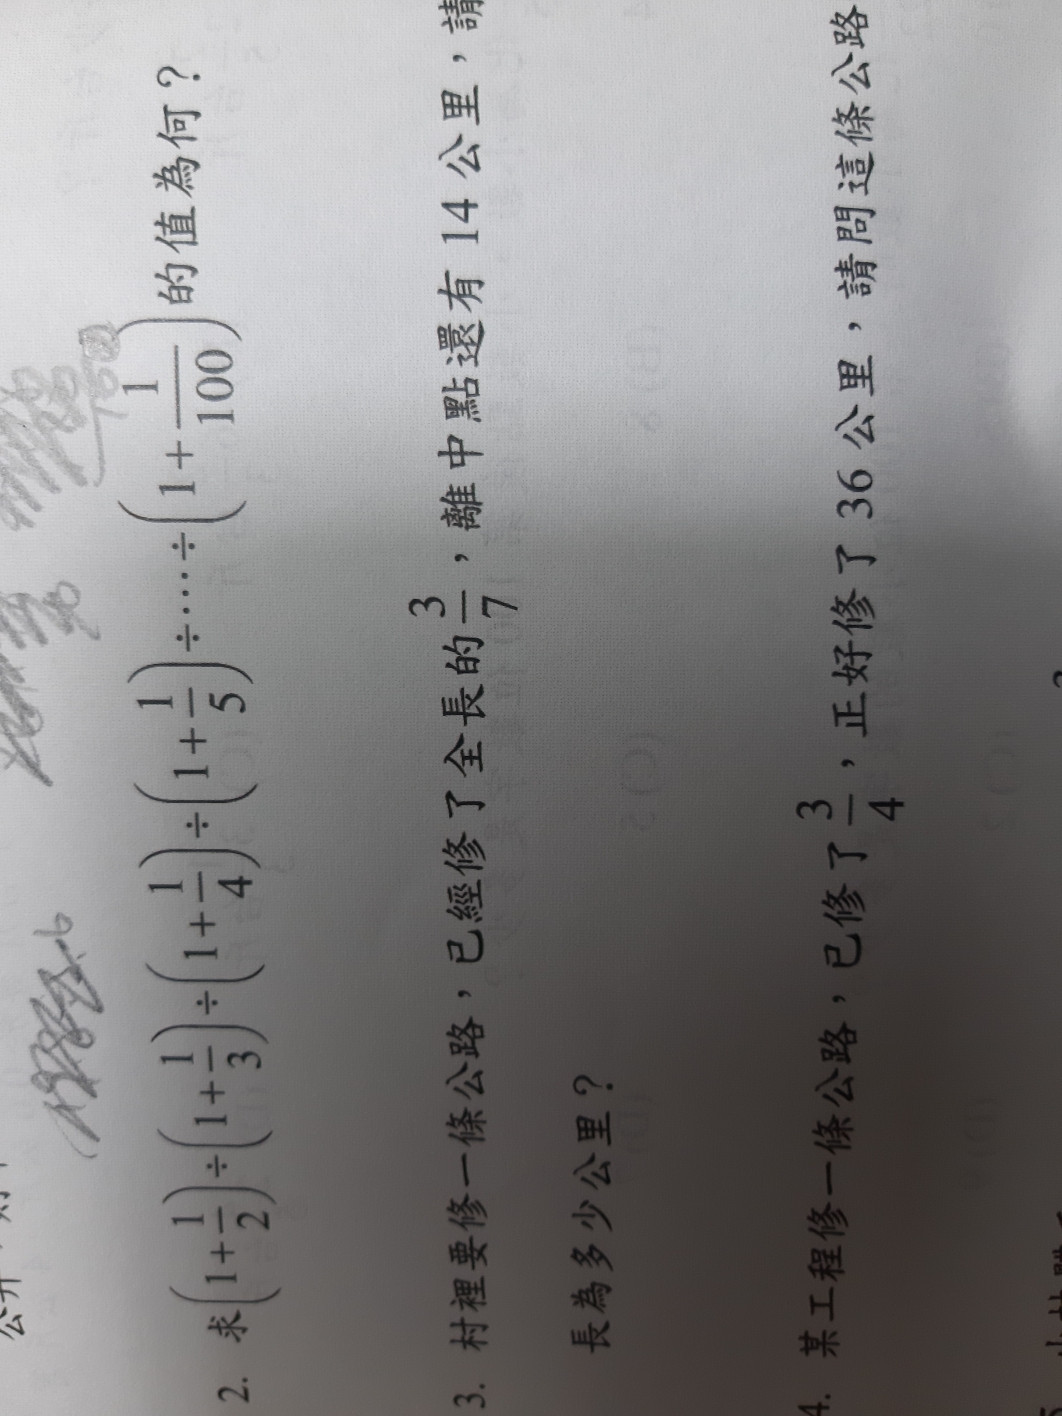 2. 求(1+1/2)÷(1+1/3)÷(1+1/4)÷(1+1/5)÷……÷(1+1/100)的值為何？
3. 村裡要修一條公路，已經修了全長的3/7，離中點還有 14 公里，請
長為多少公里？
4. 某工程修一條公路，已修了3/4，正好修了 36 公里，請問這條公路